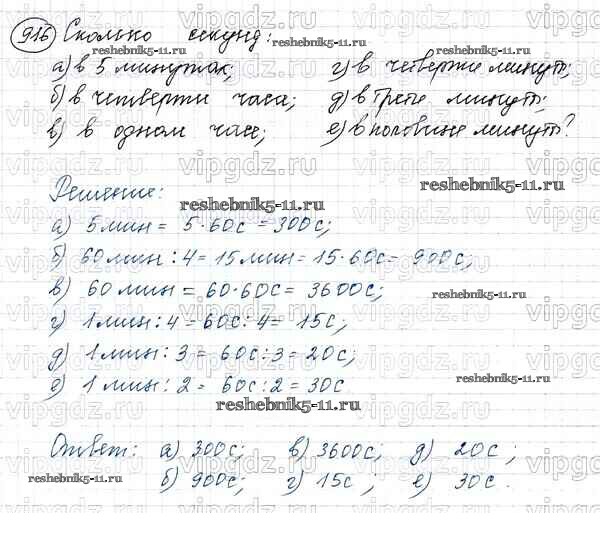 916 Сколько секунд:
а) в 5 минутах; г) в четверти минуты;
б) в четверти часа; д) в трети минуты;
в) в одном часе; е) в половине минуты?
Решение:
а) 5 мин = 5·60с = 300с;
б) 60 мин : 4 = 15 мин = 15·60с = 900с;
в) 60 мин = 60·60с = 3600с;
г) 1 мин : 4 = 60с : 4 = 15с;
д) 1 мин : 3 = 60с : 3 = 20с;
е) 1 мин : 2 = 60с : 2 = 30с.
Ответ: а) 300с; в) 3600с; д) 20с;
б) 900с; г) 15с; е) 30с.
vipgdz.ru
reshebnik5-11.ru